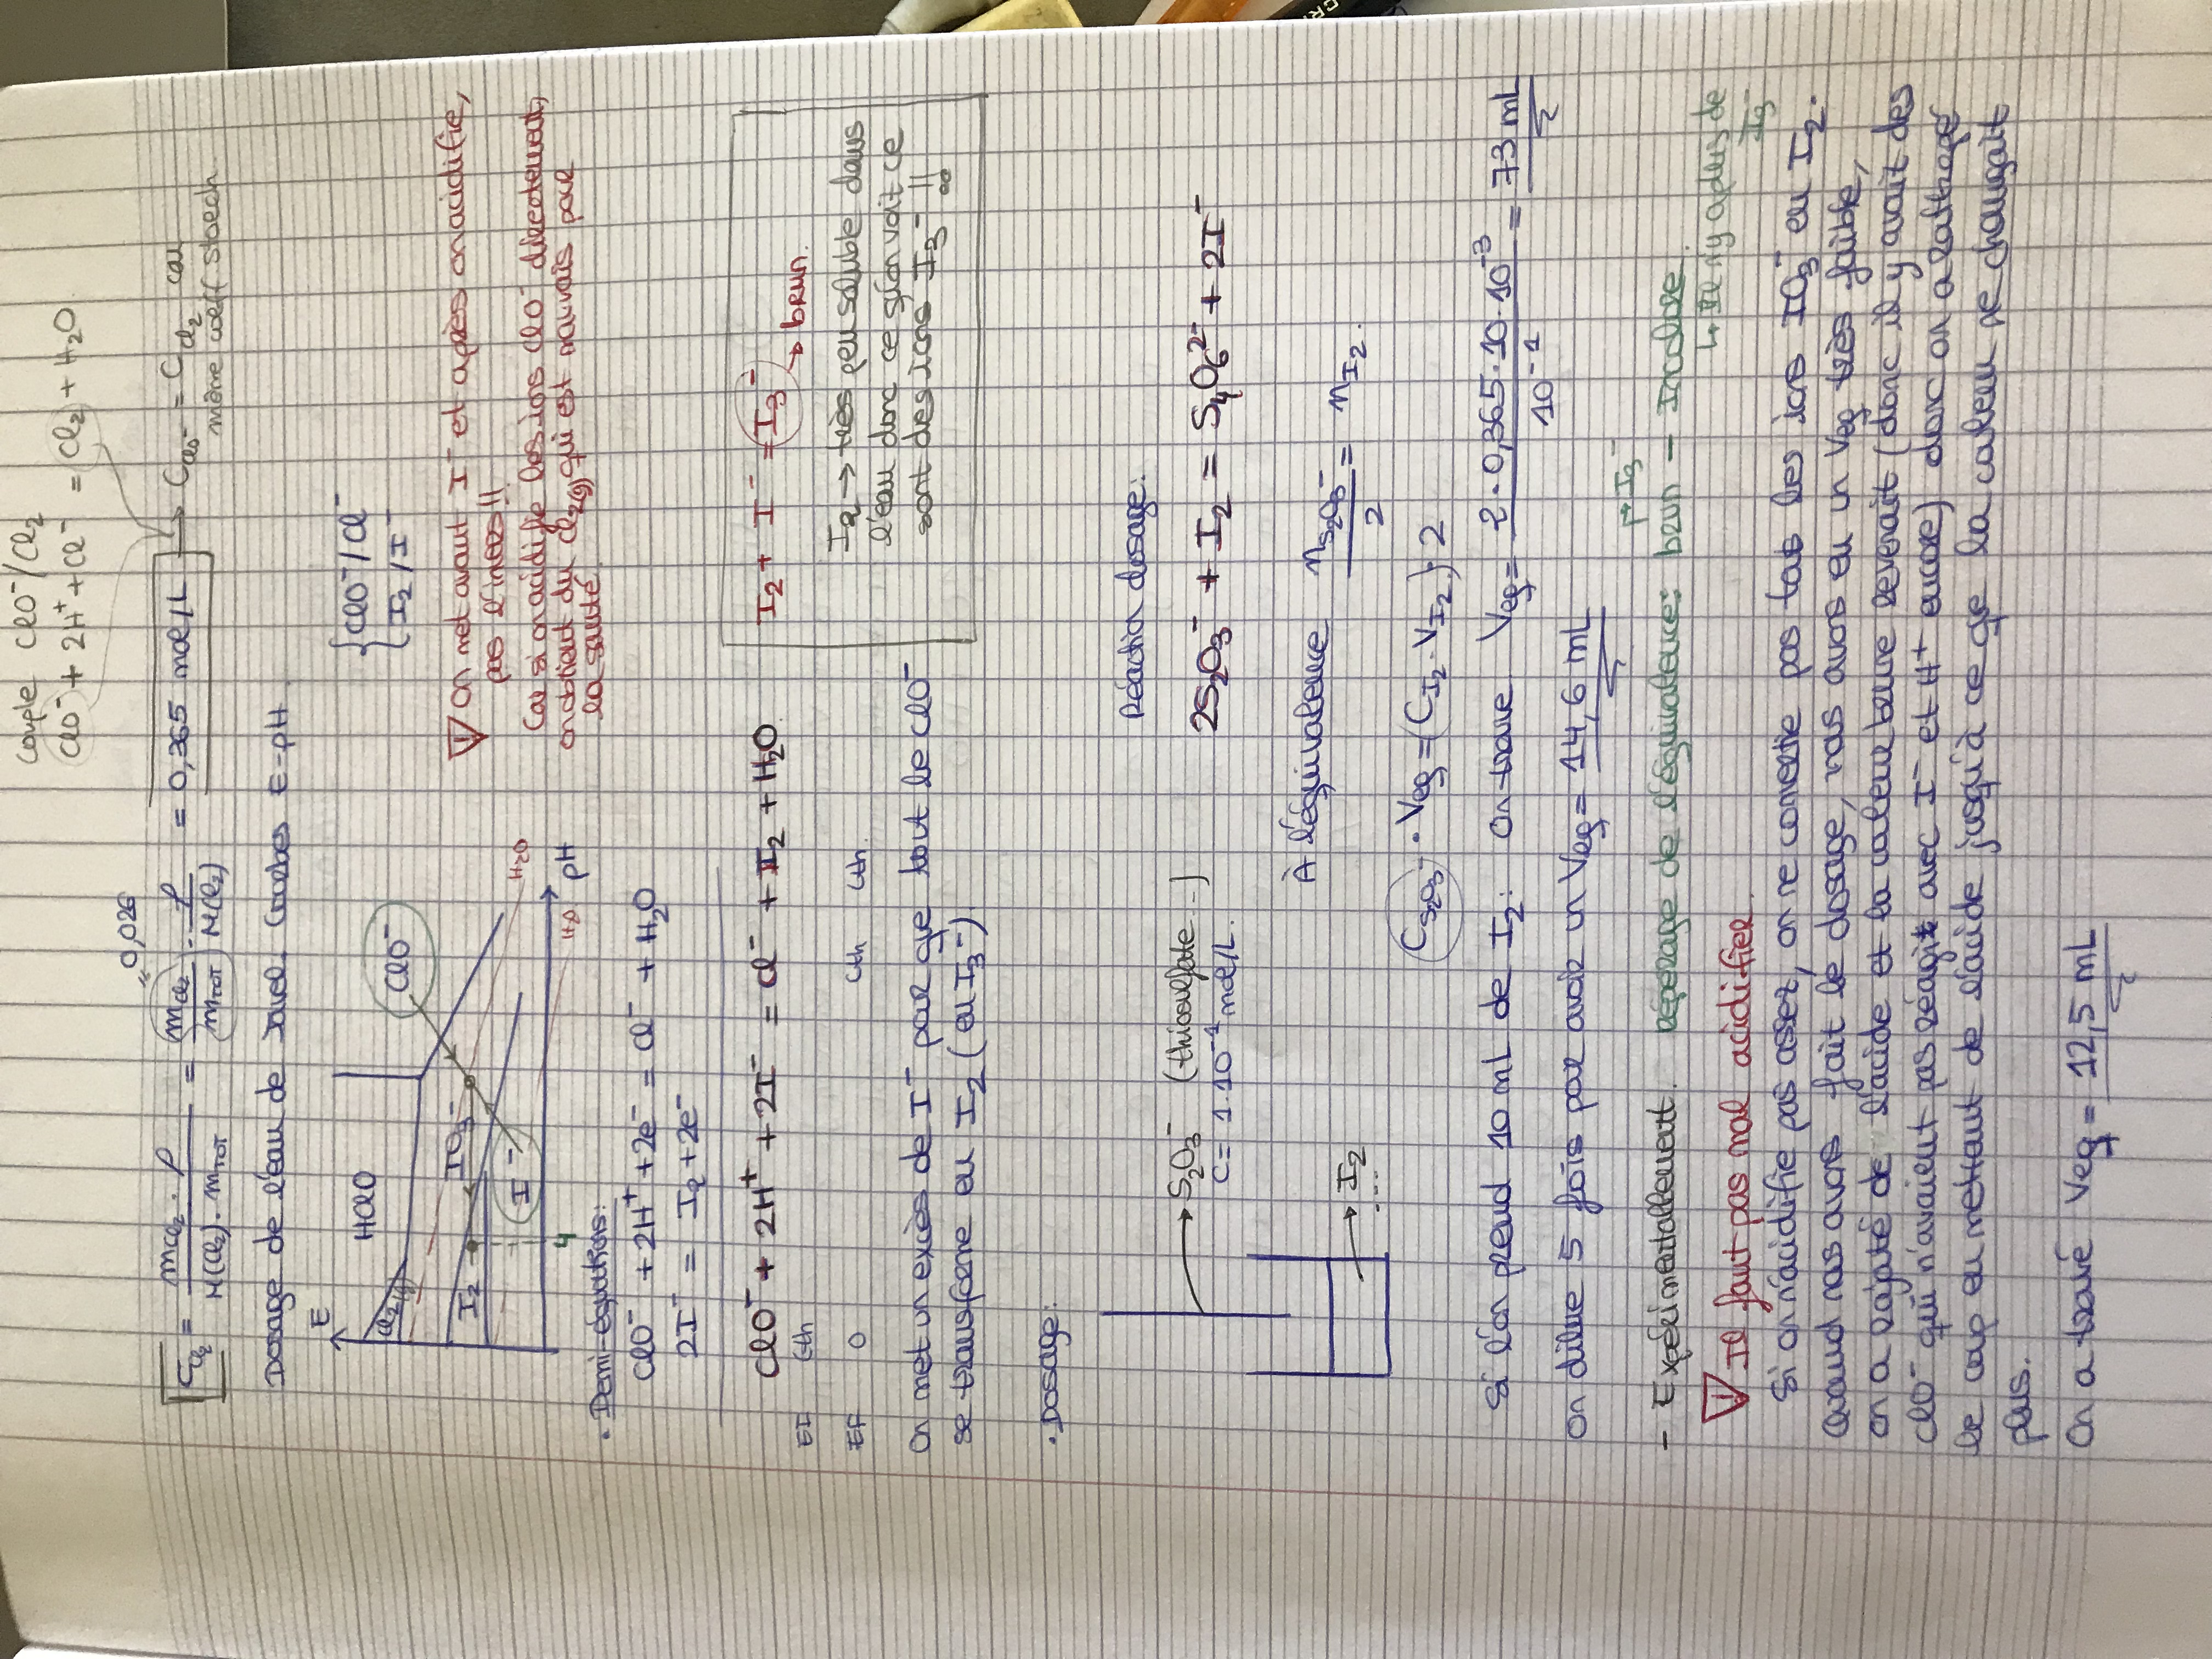 Couple ClO⁻/Cl₂
ClO⁻ + 2H⁺ + Cl⁻ = Cl₂ + H₂O
0,026
C_Cl₂ = (m_Cl₂ · ρ)/(M(Cl₂) · m_TOT) = (m_Cl₂/m_TOT) · ρ/M(Cl₂) = 0,365 mol/L → C_ClO⁻ = C_Cl₂ car
même coeff stoech
Dosage de l'eau de Javel. Courbes E-pH.
E
HClO
Cl₂(g)
ClO⁻
I₂
IO₃⁻
I⁻
H₂O
H₂O
pH
4
{ ClO⁻/Cl⁻
{ I₂/I⁻
! On met avant I⁻ et après on acidifie,
pas l'inverse!!
Car si on acidifie les ions ClO⁻ directement,
on obtient du Cl₂(g) qui est mauvais pour
la santé.
• Demi-équations:
ClO⁻ + 2H⁺ + 2e⁻ = Cl⁻ + H₂O
2I⁻ = I₂ + 2e⁻
ClO⁻ + 2H⁺ + 2I⁻ = Cl⁻ + I₂ + H₂O.
EI Cth
EF 0 Cth Cth.
I₂ + I⁻ = I₃⁻
→ brun.
I₂ → très peu soluble dans
l'eau donc ce qu'on voit ce
sont des ions I₃⁻ !!
On met un excès de I⁻ pour que tout le ClO⁻
se transforme en I₂ (en I₃⁻)
• Dosage:
→ S₂O₃⁻ (thiosulfate...)
C = 1.10⁻¹ mol/L.
→ I₂
Réaction dosage:
2S₂O₃⁻ + I₂ = S₄O₆²⁻ + 2I⁻
À l'équivalence n_S₂O₃⁻/2 = n_I₂.
C_S₂O₃⁻ · Veq = (C_I₂ · V_I₂) · 2
Si l'on prend 10 mL de I₂: On trouve Veq = (2 · 0,365 · 10 · 10⁻³)/10⁻¹ = 73 mL
On dilue 5 fois pour avoir un Veq = 14,6 mL
→ I₃⁻
- Expérimentallement. Répérage de l'équivalence: brun — Incolore.
↳ Il n'y a plus de
I₃⁻
! Il faut pas mal acidifier.
Si on n'acidifie pas assez, on ne convertie pas tous les ions IO₃⁻ en I₂.
Quand nous avons fait le dosage, nous avons eu un Veq très faible,
on a rajouté de l'acide et la couleur brune revenait (donc il y avait des
ClO⁻ qui n'avaient pas réagit avec I⁻ et H⁺ encore) donc on a rattrapé
le coup en mettant de l'acide jusqu'à ce que la couleur ne changait
plus.
On a trouvé Veq = 12,5 mL